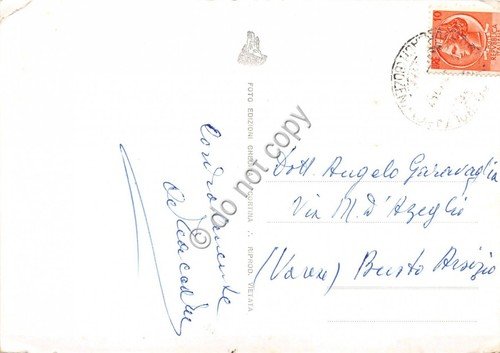 Cordialmente
FOTO EDIZIONI GHEDINA - CORTINA - RIPROD. VIETATA
© do not copy
10
Dott. Angelo Garavaglia
Via M. D'Azeglio
(Varese) Busto Arsizio